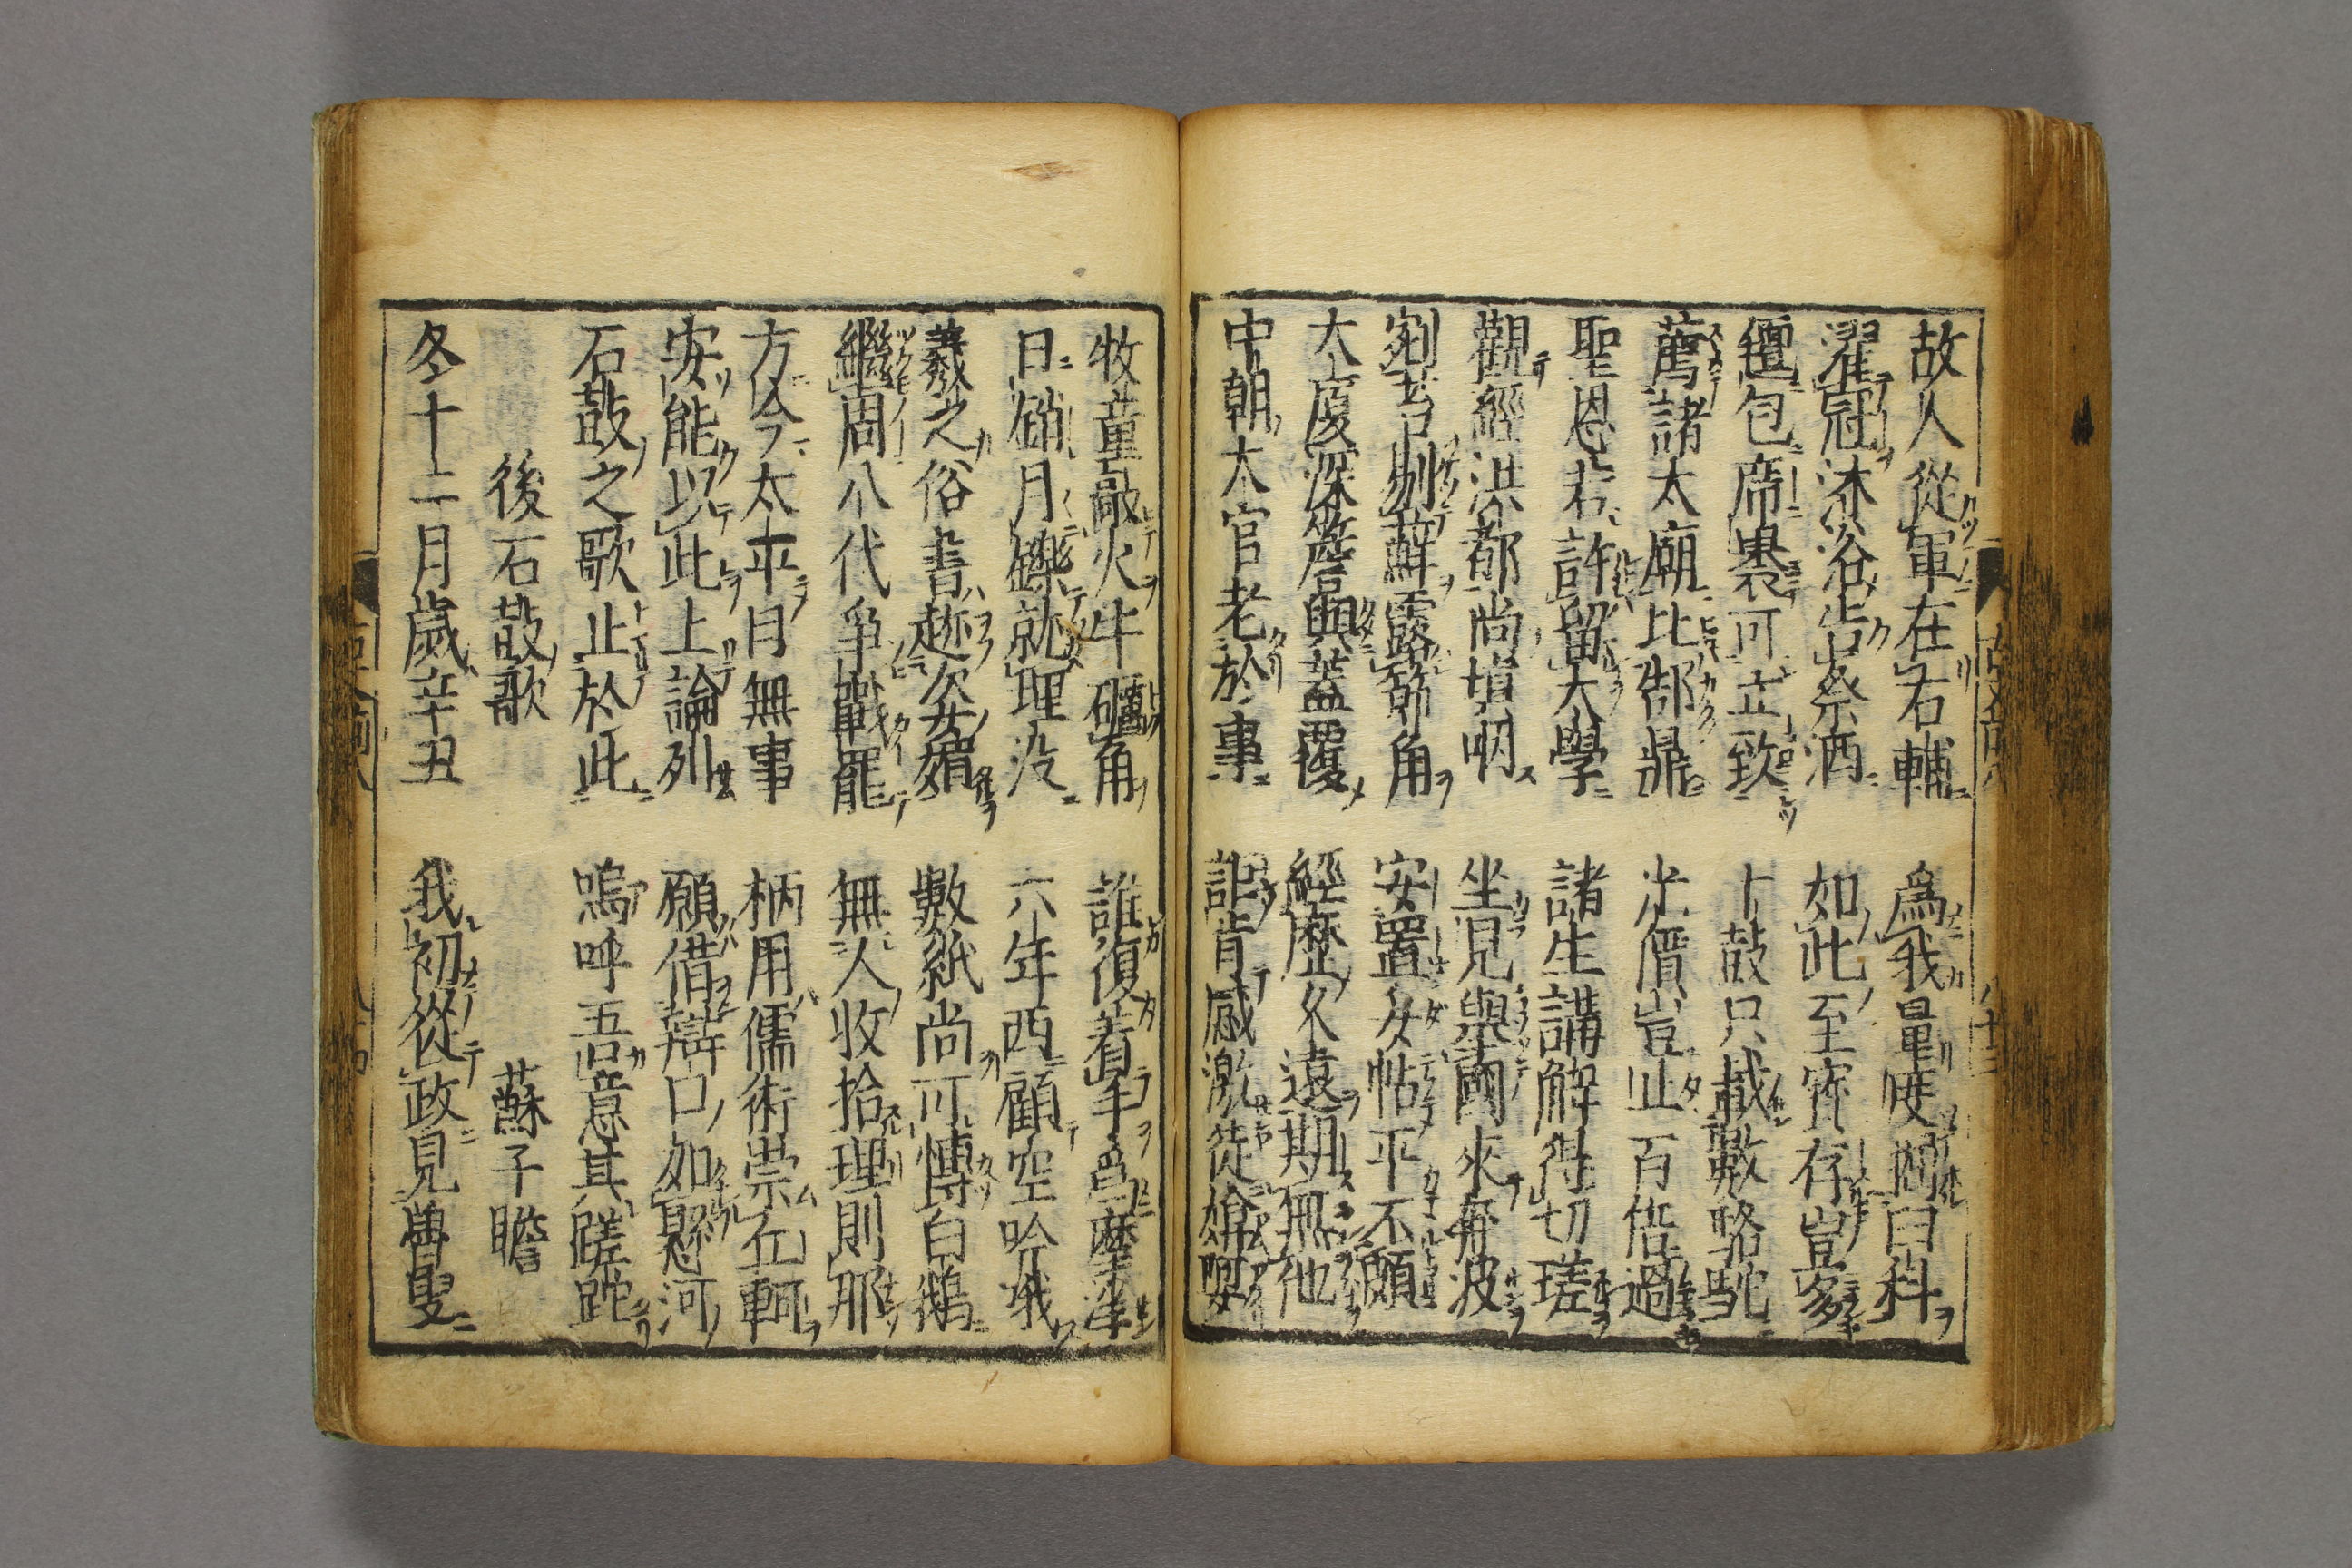 故人從軍在右輔 爲我量度掘臼科
濯冠沐浴告祭酒 如此至寶存豈多
氊包席裹可立致 十鼓只載數駱駝
薦諸太廟比郜鼎 光價豈止百倍過
聖恩若許留太學 諸生講解得切瑳
觀經洪都尚塡咽 坐見舉國來奔波
剜苔剔蘚露節角 安置妥帖平不頗
大廈深簷與蓋覆 經歷久遠期無他
中朝大官老於事 詎肯感激徒媕婀
牧童敲火牛礪角 誰復着手爲摩挲
日銷月鑠就埋没 六年西顧空吟哦
羲之俗書趂姿媚 數紙尚可博白鵝
繼周八代爭戰罷 無人收拾理則那
方今太平日無事 柄用儒術崇丘軻
安能以此上論列 願借辯口如懸河
石鼓之歌止於此 嗚呼吾意其蹉跎
後石鼓歌 蘇子瞻
冬十二月歲辛丑 我初從政見魯叟